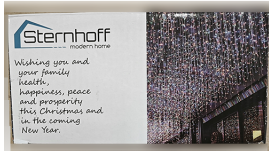 Sternhoff
modern home
Wishing you and
your family
health,
happiness, peace
and prosperity
this Christmas and
in the coming
New Year.